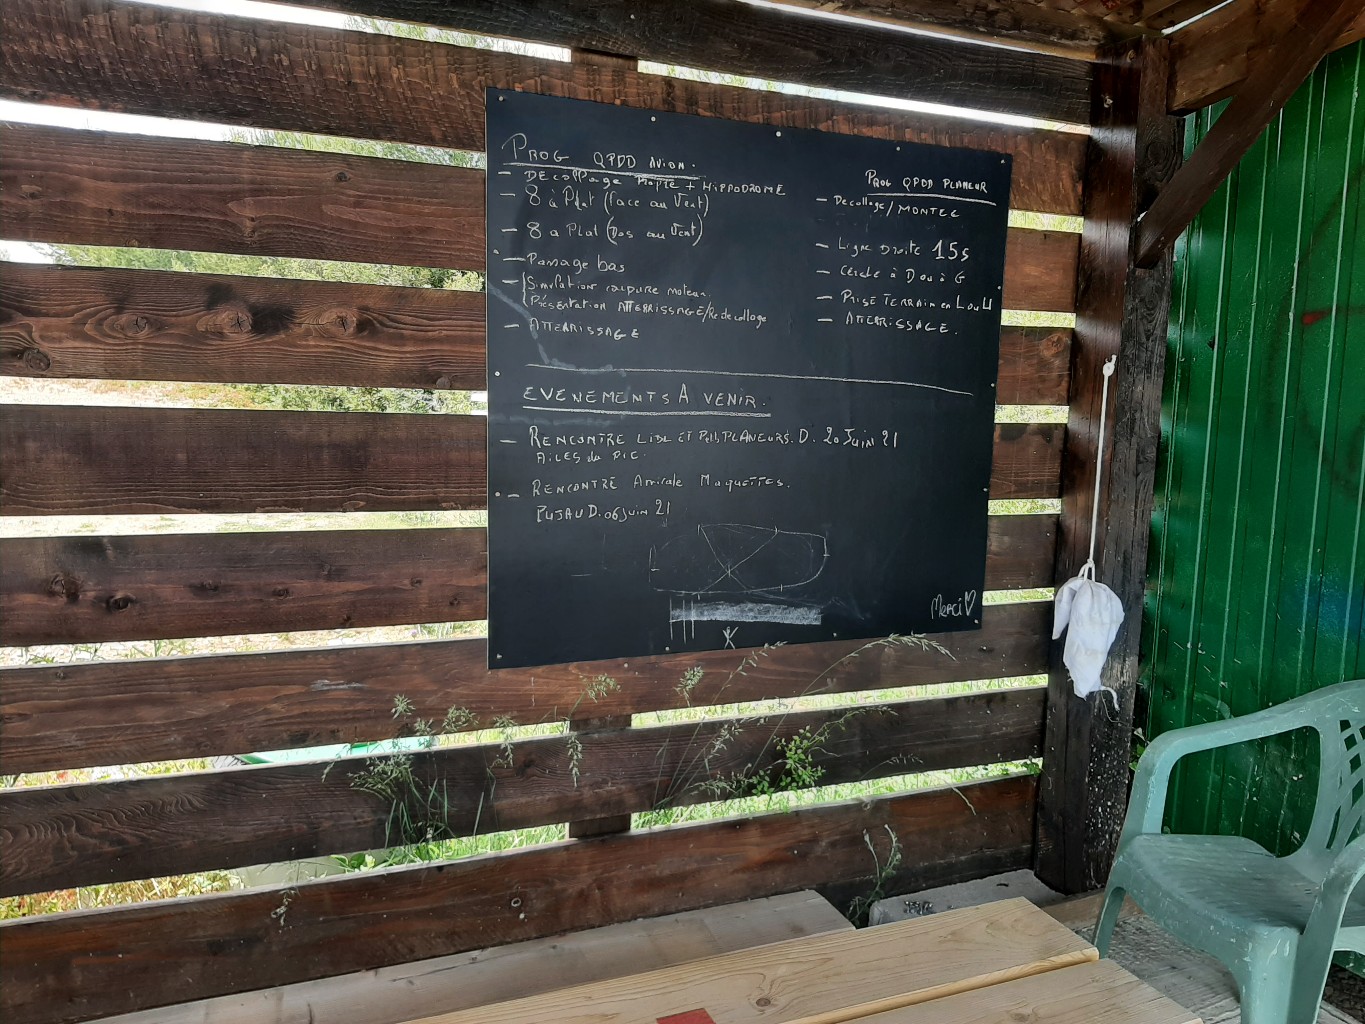 PROG QPDD AVION.
- DECOllage Monté + HiPPODROME
- 8 à Plat (face au Vent)
- 8 a Plat (Dos au Vent)
- Passage bas
- Simulation coupure moteur.
Présentation ATTERRISSAGE/Redecollage
- ATTERRISSAGE
PROG QPDD PLANEUR
- Decollage/MONTEE
- Ligne Droite 15s
- Cercle à D ou à G
- PRISE TERRAIN en L ou U
- ATTERRISSAGE.
EVENEMENTS A VENIR.
- RENCONTRE ET PLANEURS. D. 20 Juin 21
AILES du PIC.
- RENCONTRE Amicale Maquettes.
PUJAU D. 06 juin 21
Merci ♡